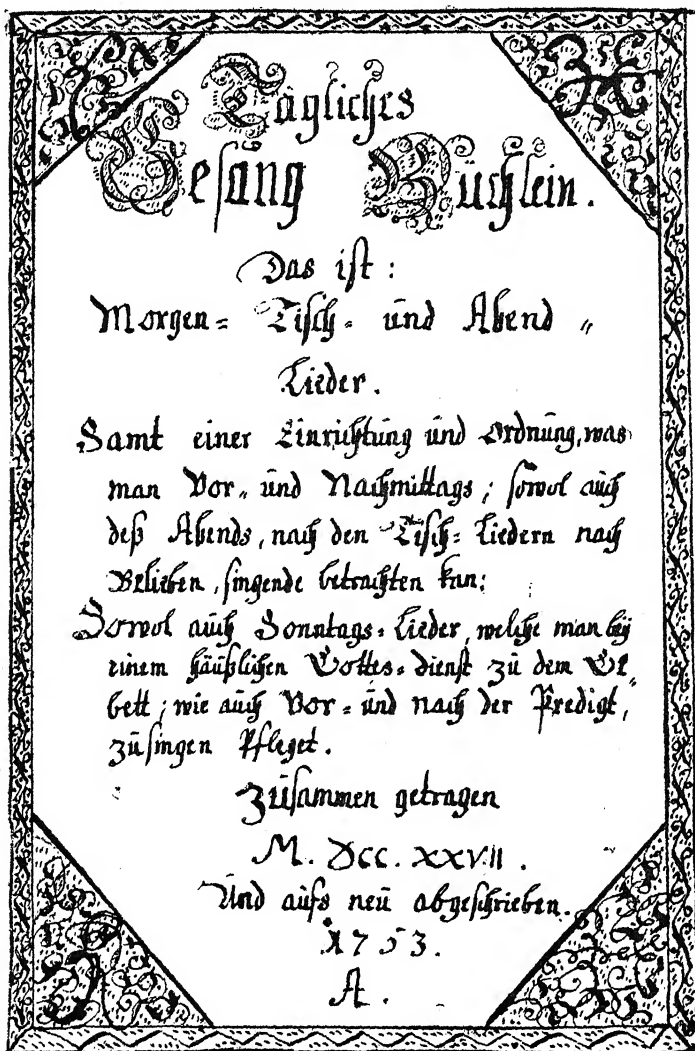 Tägliches
Gesang Büchlein.
Das ist:
Morgen= Tisch= und Abend "
Lieder.
Samt einer Einrichtung und Ordnung, was
man Vor„ und Nachmittags; sowol auch
deß Abends, nach den Tisch= Liedern nach
Belieben, singende betrachten kan;
Sowol auch Sonntags= Lieder, welche man bey
einem häußlichen Gottes= dienst zu dem Ge"
bett; wie auch Vor= und nach der Predigt,
zusingen Pfleget.
Zusammen getragen
M. DCC. XXVII.
Und aufs neu abgeschrieben.
1753.
A.